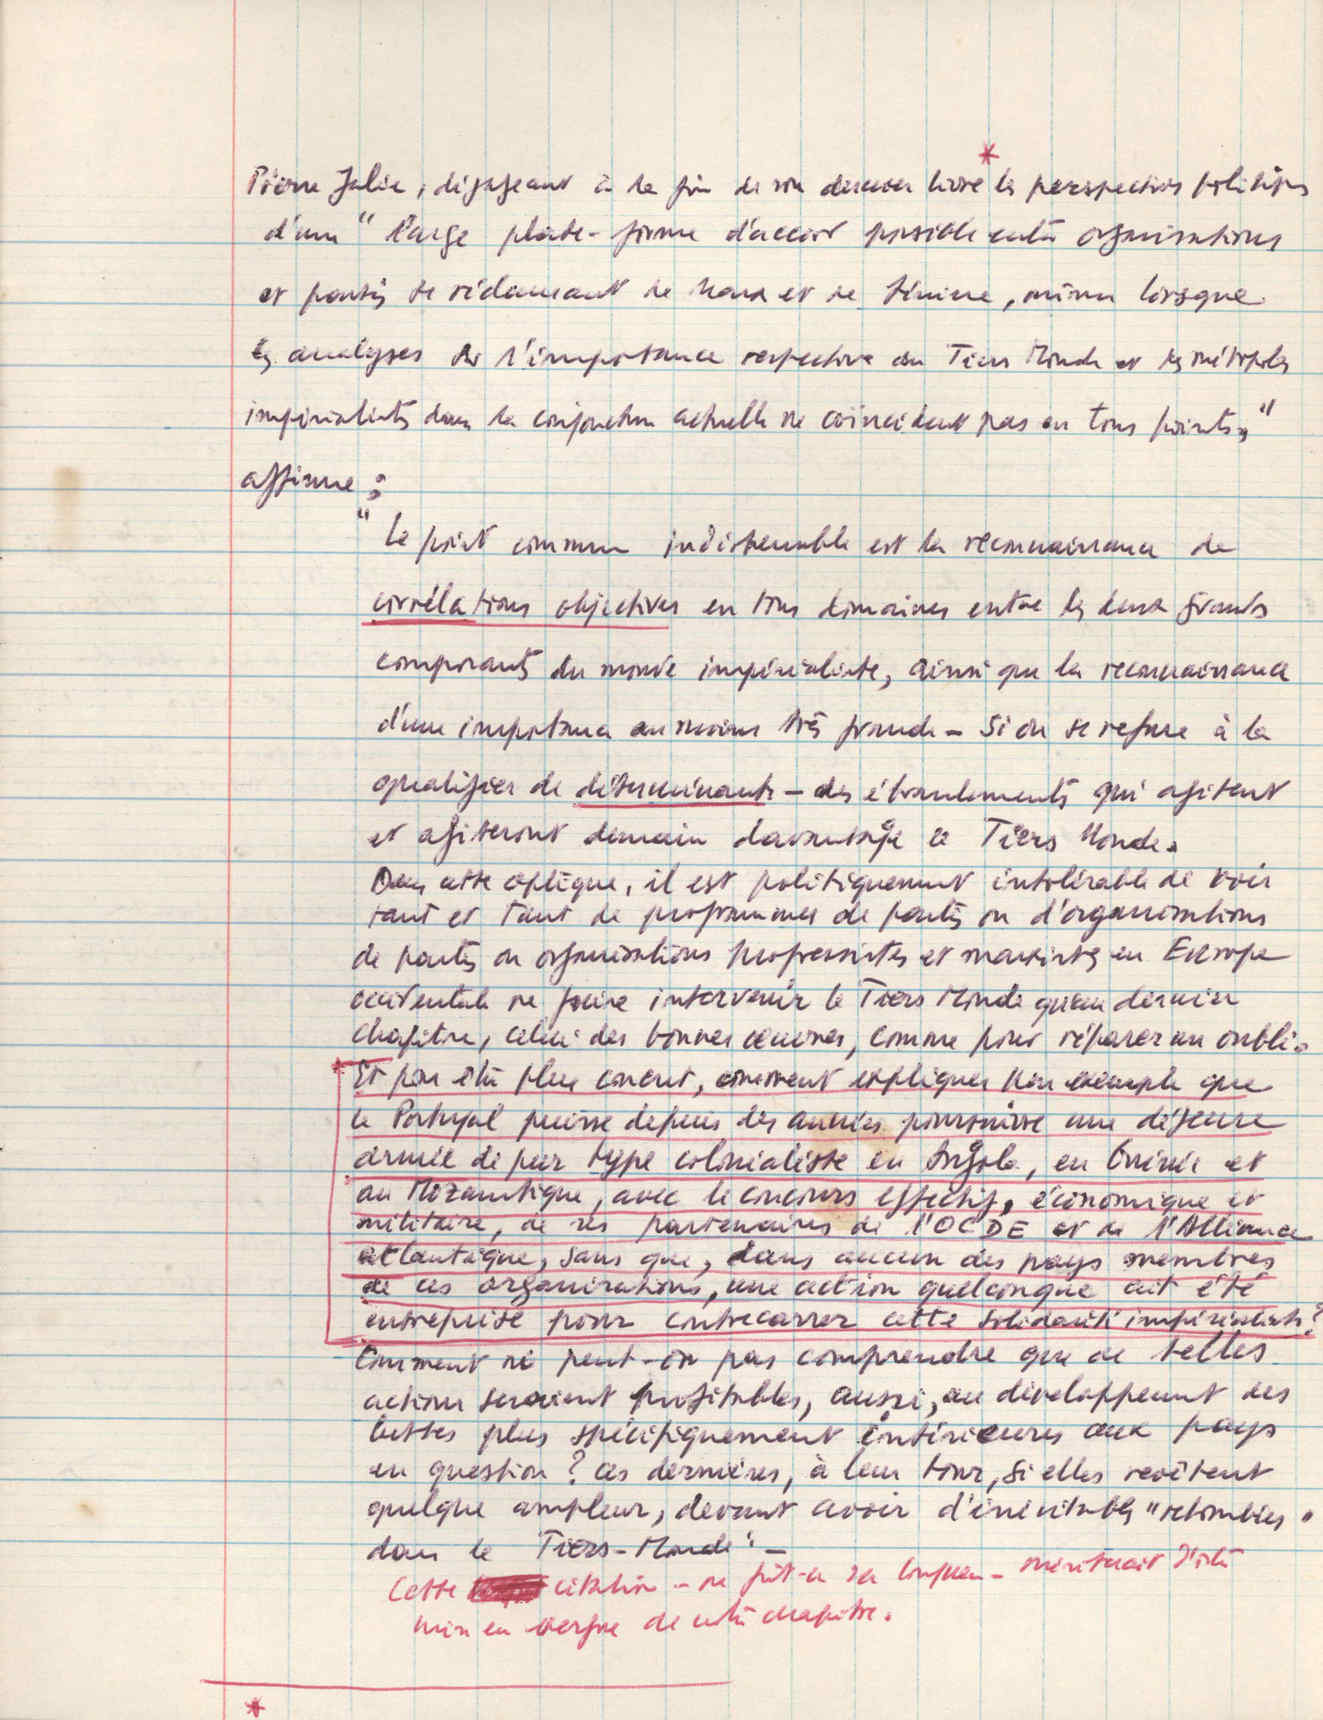 *
Pierre Jalée, dégageant à la fin de son dernier livre les perspectives politiques
d'une "large plate-forme d'accord possible entre organisations
et partis se réclamant de Marx et de Lénine, même lorsque
les analyses de l'importance respective du Tiers Monde et des métropoles
impérialistes dans la conjoncture actuelle ne coïncident pas en tous points,"
affirme :
"Le point commun indispensable est la reconnaissance de
corrélations objectives en tous domaines entre les deux grands
composants du monde impérialiste, ainsi que la reconnaissance
d'une importance au moins très grande - si on se refuse à la
qualifier de déterminante - des ébranlements qui agitent
et agiteront demain davantage le Tiers Monde.
Dans cette optique, il est politiquement intolérable de voir
tant et tant de programmes de partis ou d'organisations
de partis ou organisations progressistes et marxistes en Europe
occidentale ne faire intervenir le Tiers Monde qu'en dernier
chapitre, celui des bonnes œuvres, comme pour réparer un oubli.
Et pour être plus concret, comment expliquer par exemple que
le Portugal puisse depuis des années poursuivre une défense
armée de pur type colonialiste en Angola, en Guinée et
au Mozambique, avec le concours effectif, économique et
militaire, de ses partenaires de l'OCDE et de l'Alliance
atlantique, sans que, dans aucun des pays membres
de ces organisations, une action quelconque ait été
entreprise pour contrecarrer cette solidarité impérialiste ?
Comment ne peut-on pas comprendre que de telles
actions seraient profitables, aussi, au développement des
luttes plus spécifiquement intérieures aux pays
en question ? ces dernières, à leur tour, si elles revêtent
quelque ampleur, devant avoir d'inévitables "retombées"
dans le Tiers-Monde" -
Cette citation - ne fût-ce sa longueur - mériterait d'être
mise en exergue de notre chapitre.
*